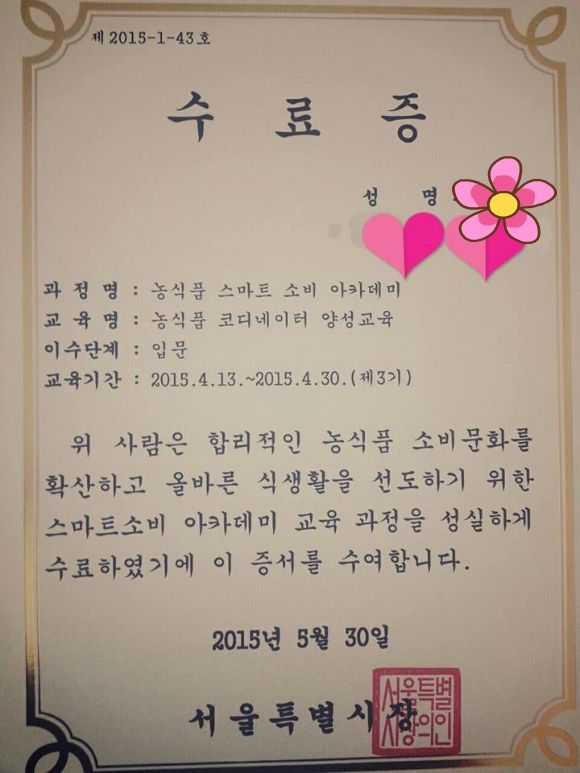 제 2015-1-43 호
수 료 증
성 명
과 정 명 : 농식품 스마트 소비 아카데미
교 육 명 : 농식품 코디네이터 양성교육
이수단계 : 입문
교육기간 : 2015.4.13.~2015.4.30.(제3기)
위 사람은 합리적인 농식품 소비문화를
확산하고 올바른 식생활을 선도하기 위한
스마트소비 아카데미 교육 과정을 성실하게
수료하였기에 이 증서를 수여합니다.
2015년 5월 30일
서울특별시장
서울특별
시장의인